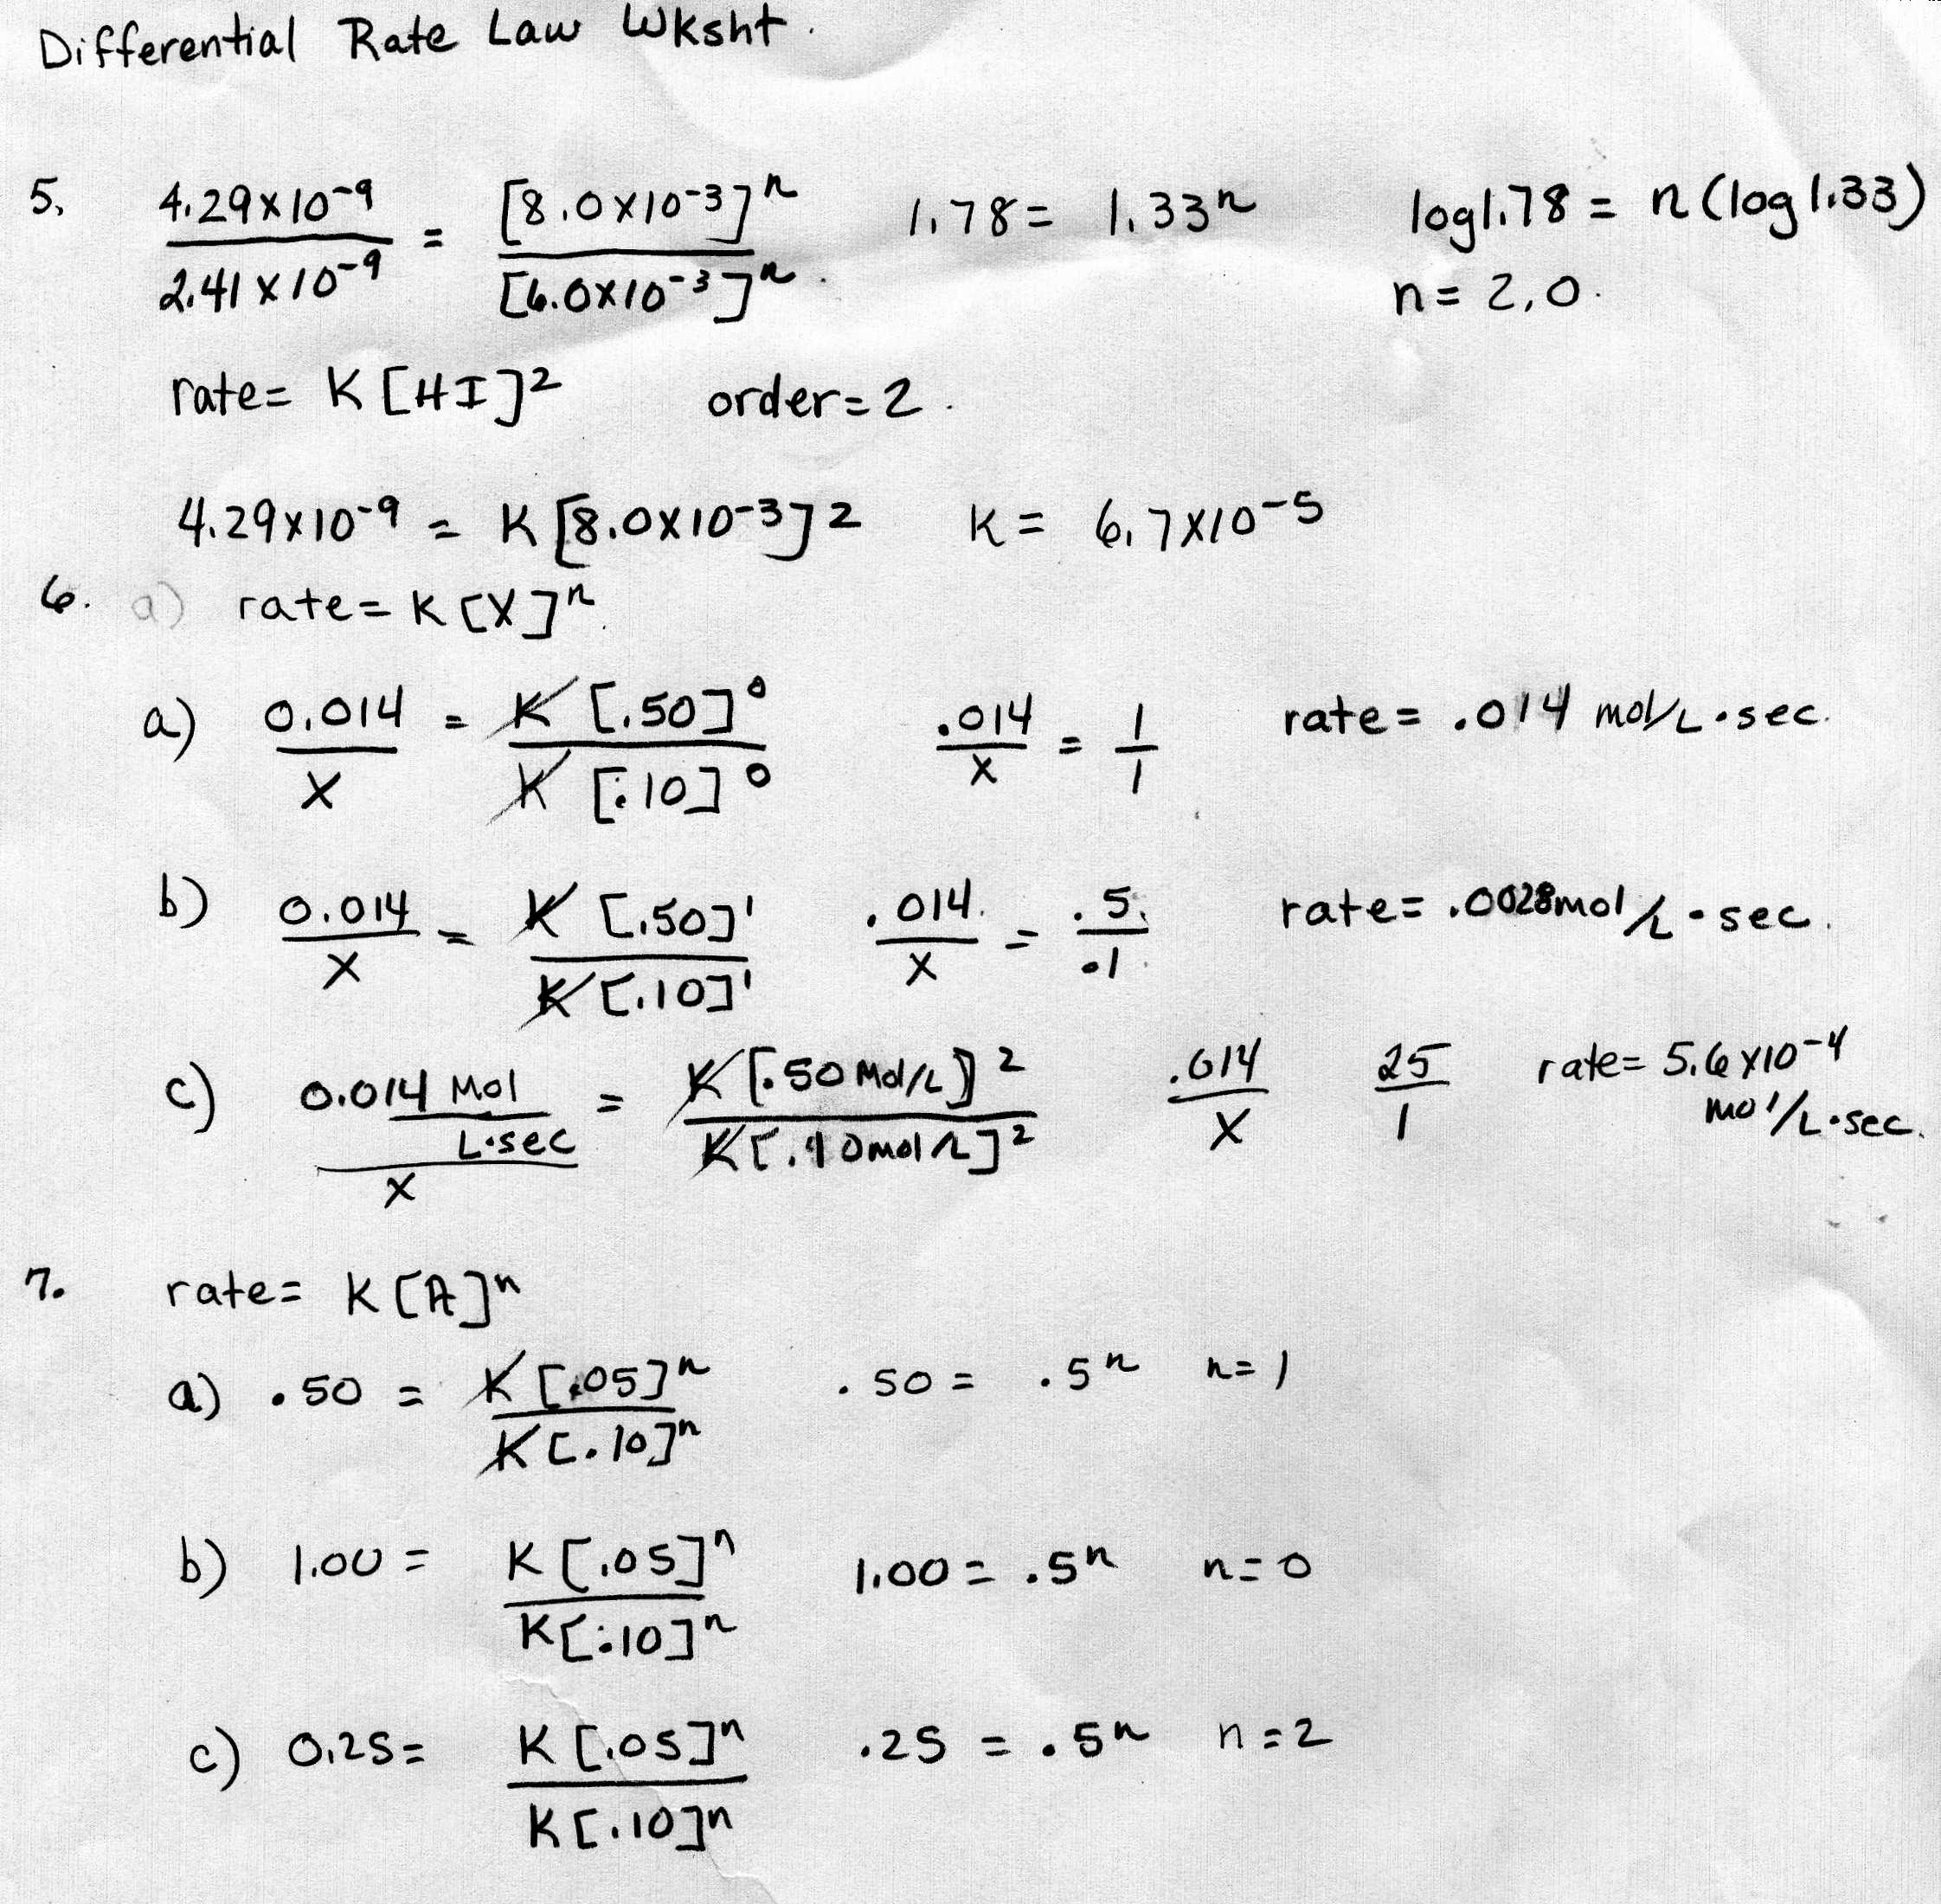 Differential Rate Law Wksht.
5. 4.29x10^-9 / 2.41x10^-9 = [8.0x10^-3]^n / [6.0x10^-3]^n 1.78 = 1.33^n log1.78 = n(log1.33)
n = 2.0
rate = K[HI]^2 order = 2.
4.29x10^-9 = K[8.0x10^-3]^2 K = 6.7x10^-5
6. a) rate = K[X]^n
a) 0.014 / X = K[.50]^0 / K[.10]^0 .014 / X = 1 / 1 rate = .014 mol/L·sec.
b) 0.014 / X = K[.50]^1 / K[.10]^1 .014 / X = .5 / .1 rate = .0028mol/L·sec.
c) 0.014 Mol / L·sec / X = K[.50 Mol/L]^2 / K[.10mol/L]^2 .014 / X 25 / 1 rate = 5.6x10^-4
mol/L·sec.
7. rate = K[A]^n
a) .50 = K[.05]^n / K[.10]^n .50 = .5^n n = 1
b) 1.00 = K[.05]^n / K[.10]^n 1.00 = .5^n n = 0
c) 0.25 = K[.05]^n / K[.10]^n .25 = .5^n n = 2